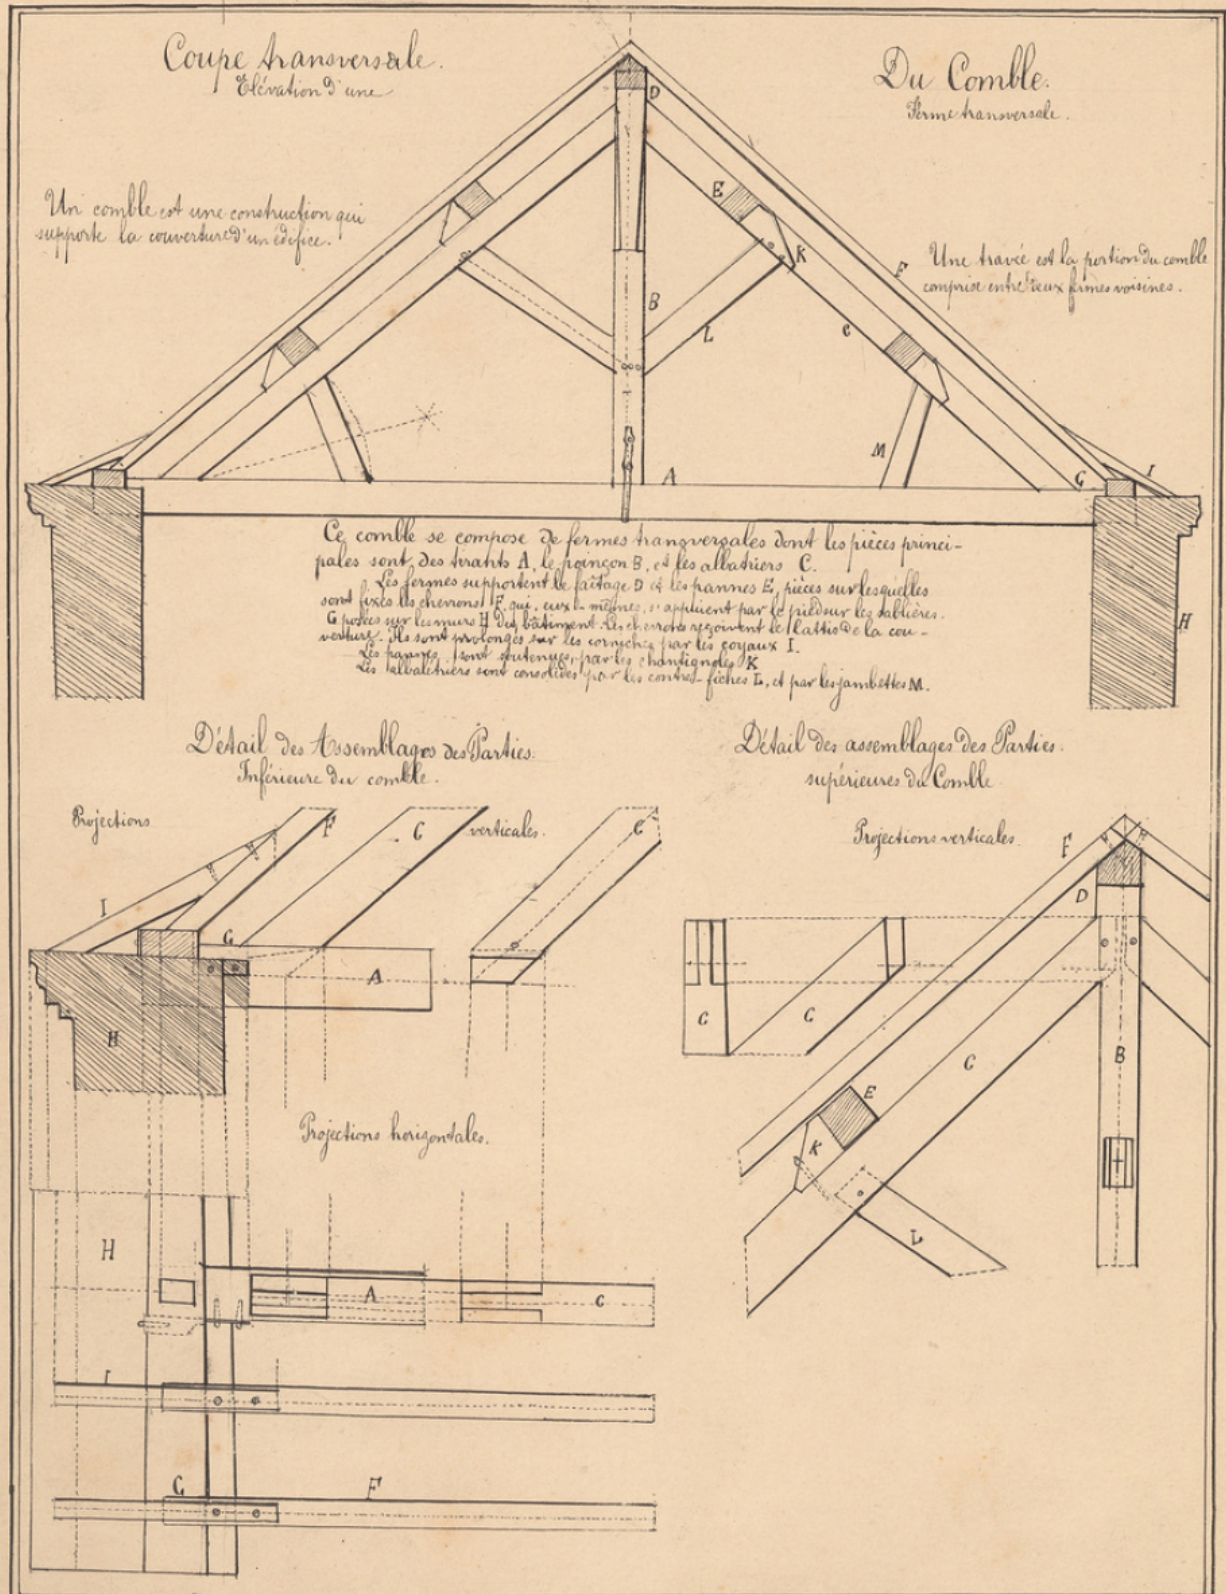 Coupe transversale.
Elévation d'une
Du Comble.
Ferme transversale.
Un comble est une construction qui
supporte la couverture d'un édifice.
Une travée est la portion du comble
comprise entre deux fermes voisines.
D
E
K
F
B
L
C
M
A
G
I
H
Ce comble se compose de fermes transversales dont les pièces princi-
pales sont des tirants A, le poinçon B, et les albatriers C.
Les fermes supportent le faîtage D et les pannes E, pièces sur lesquelles
sont fixés les chevrons F qui, eux-mêmes, s'appuient par le pied sur les sablières.
G posées sur les murs H du bâtiment. Les chevrons reçoivent le lattis de la cou-
verture. Ils sont prolongés sur les corniches par les coyaux I.
Les pannes sont soutenues par les chantignoles K
Les albalétriers sont consolidés par les contres-fiches L, et par les jambettes M.
Détail des Assemblages des Parties.
Inférieure du comble.
Détail des assemblages des Parties.
supérieures du Comble
Projections
verticales.
F
C
C
I
G
A
H
Projections verticales.
F
D
C
C
C
B
E
K
L
Projections horizontales.
H
A
C
I
G
F